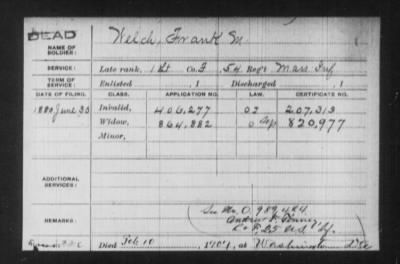 DEAD
NAME OF SOLDIER: Welch, Frank M
SERVICE: Late rank, 1 Lt Co. F, 54 Reg't Mass Inf
TERM OF SERVICE: Enlisted , 1 Discharged , 1
DATE OF FILING. CLASS. APPLICATION NO. LAW. CERTIFICATE NO.
1880 June Invalid, 406,277 207,313
Widow, 864,882 820,977
Minor,
ADDITIONAL SERVICES:
See No. O. 989,424
Andrew
REMARKS: Co F. 25 U.S.
Died Feb 10, 1907, at Washington